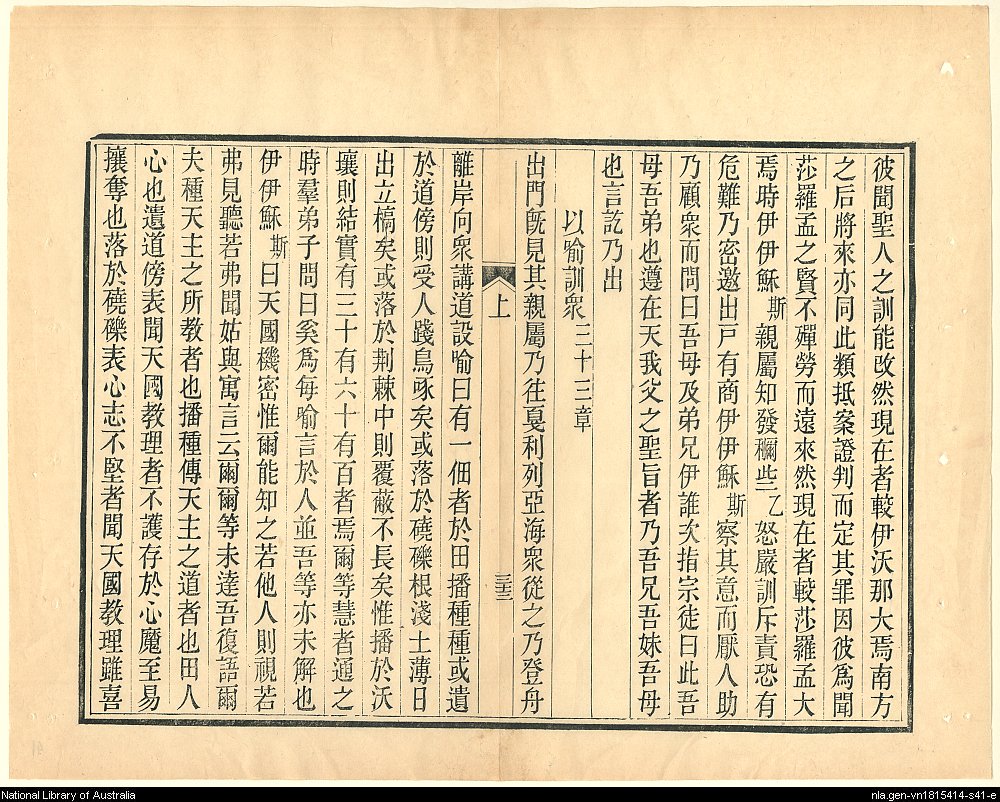 彼聞聖人之訓能改然現在者較伊沃那大焉南方
之后將來亦同此類抵案證判而定其罪因彼爲聞
莎羅孟之賢不殫勞而遠來然現在者較莎羅孟大
焉時伊伊穌斯親屬知發穪些乙怒嚴訓斥責恐有
危難乃密邀出戸有商伊伊穌斯察其意而厭人助
乃顧衆而問曰吾母及弟兄伊誰次指宗徒曰此吾
母吾弟也遵在天我父之聖旨者乃吾兄吾妹吾母
也言訖乃出
以喻訓衆三十三章
出門旣見其親屬乃往戛利列亞海衆從之乃登舟
上
三十三
離岸向衆講道設喻曰有一佃者於田播種種或遺
於道傍則受人踐鳥啄矣或落於磽礫根淺土薄日
出立槁矣或落於荆棘中則覆蔽不長矣惟播於沃
壤則結實有三十有六十有百者焉爾等慧者通之
時羣弟子問曰奚爲每喻言於人並吾等亦未解也
伊伊穌斯曰天國機密惟爾能知之若他人則視若
弗見聽若弗聞姑與寓言云爾爾等未達吾復語爾
夫種天主之所教者也播種傳天主之道者也田人
心也遺道傍表聞天國教理者不護存於心魔至易
攘奪也落於磽礫表心志不堅者聞天國教理雖喜
National Library of Australia
nla.gen-vn1815414-s41-e